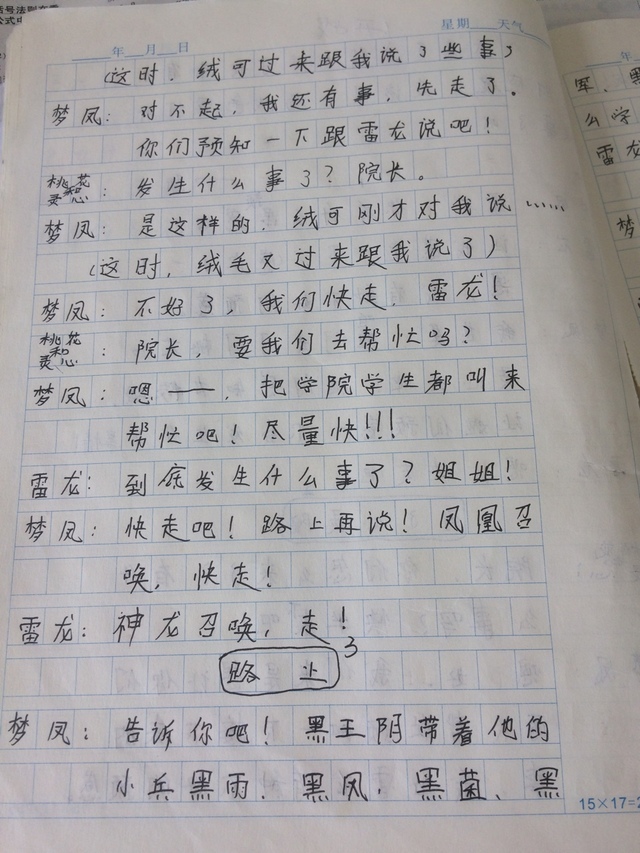 质号法则
公式
年 月 日
星期 天气
(这时，绒可过来跟我说了些事)
梦凤：对不起，我还有事，先走了。
你们预知一下跟雷龙说吧！
桃花和灵心：发生什么事了？院长。
梦凤：是这样的，绒可刚才对我说……
(这时，绒毛又过来跟我说了)
梦凤：不好了，我们快走，雷龙！
桃花和灵心：院长，要我们去帮忙吗？
梦凤：嗯——，把学院学生都叫来
帮忙吧！尽量快!!!
雷龙：到底发生什么事了？姐姐！
梦凤：快走吧！路上再说！凤凰召
唤，快走！
雷龙：神龙召唤，走！
路上 3
梦凤：告诉你吧！黑王阴带着他的
小兵黑雨，黑风，黑菌、黑
15×17=2
年
军、黑
么学
雷龙
梦